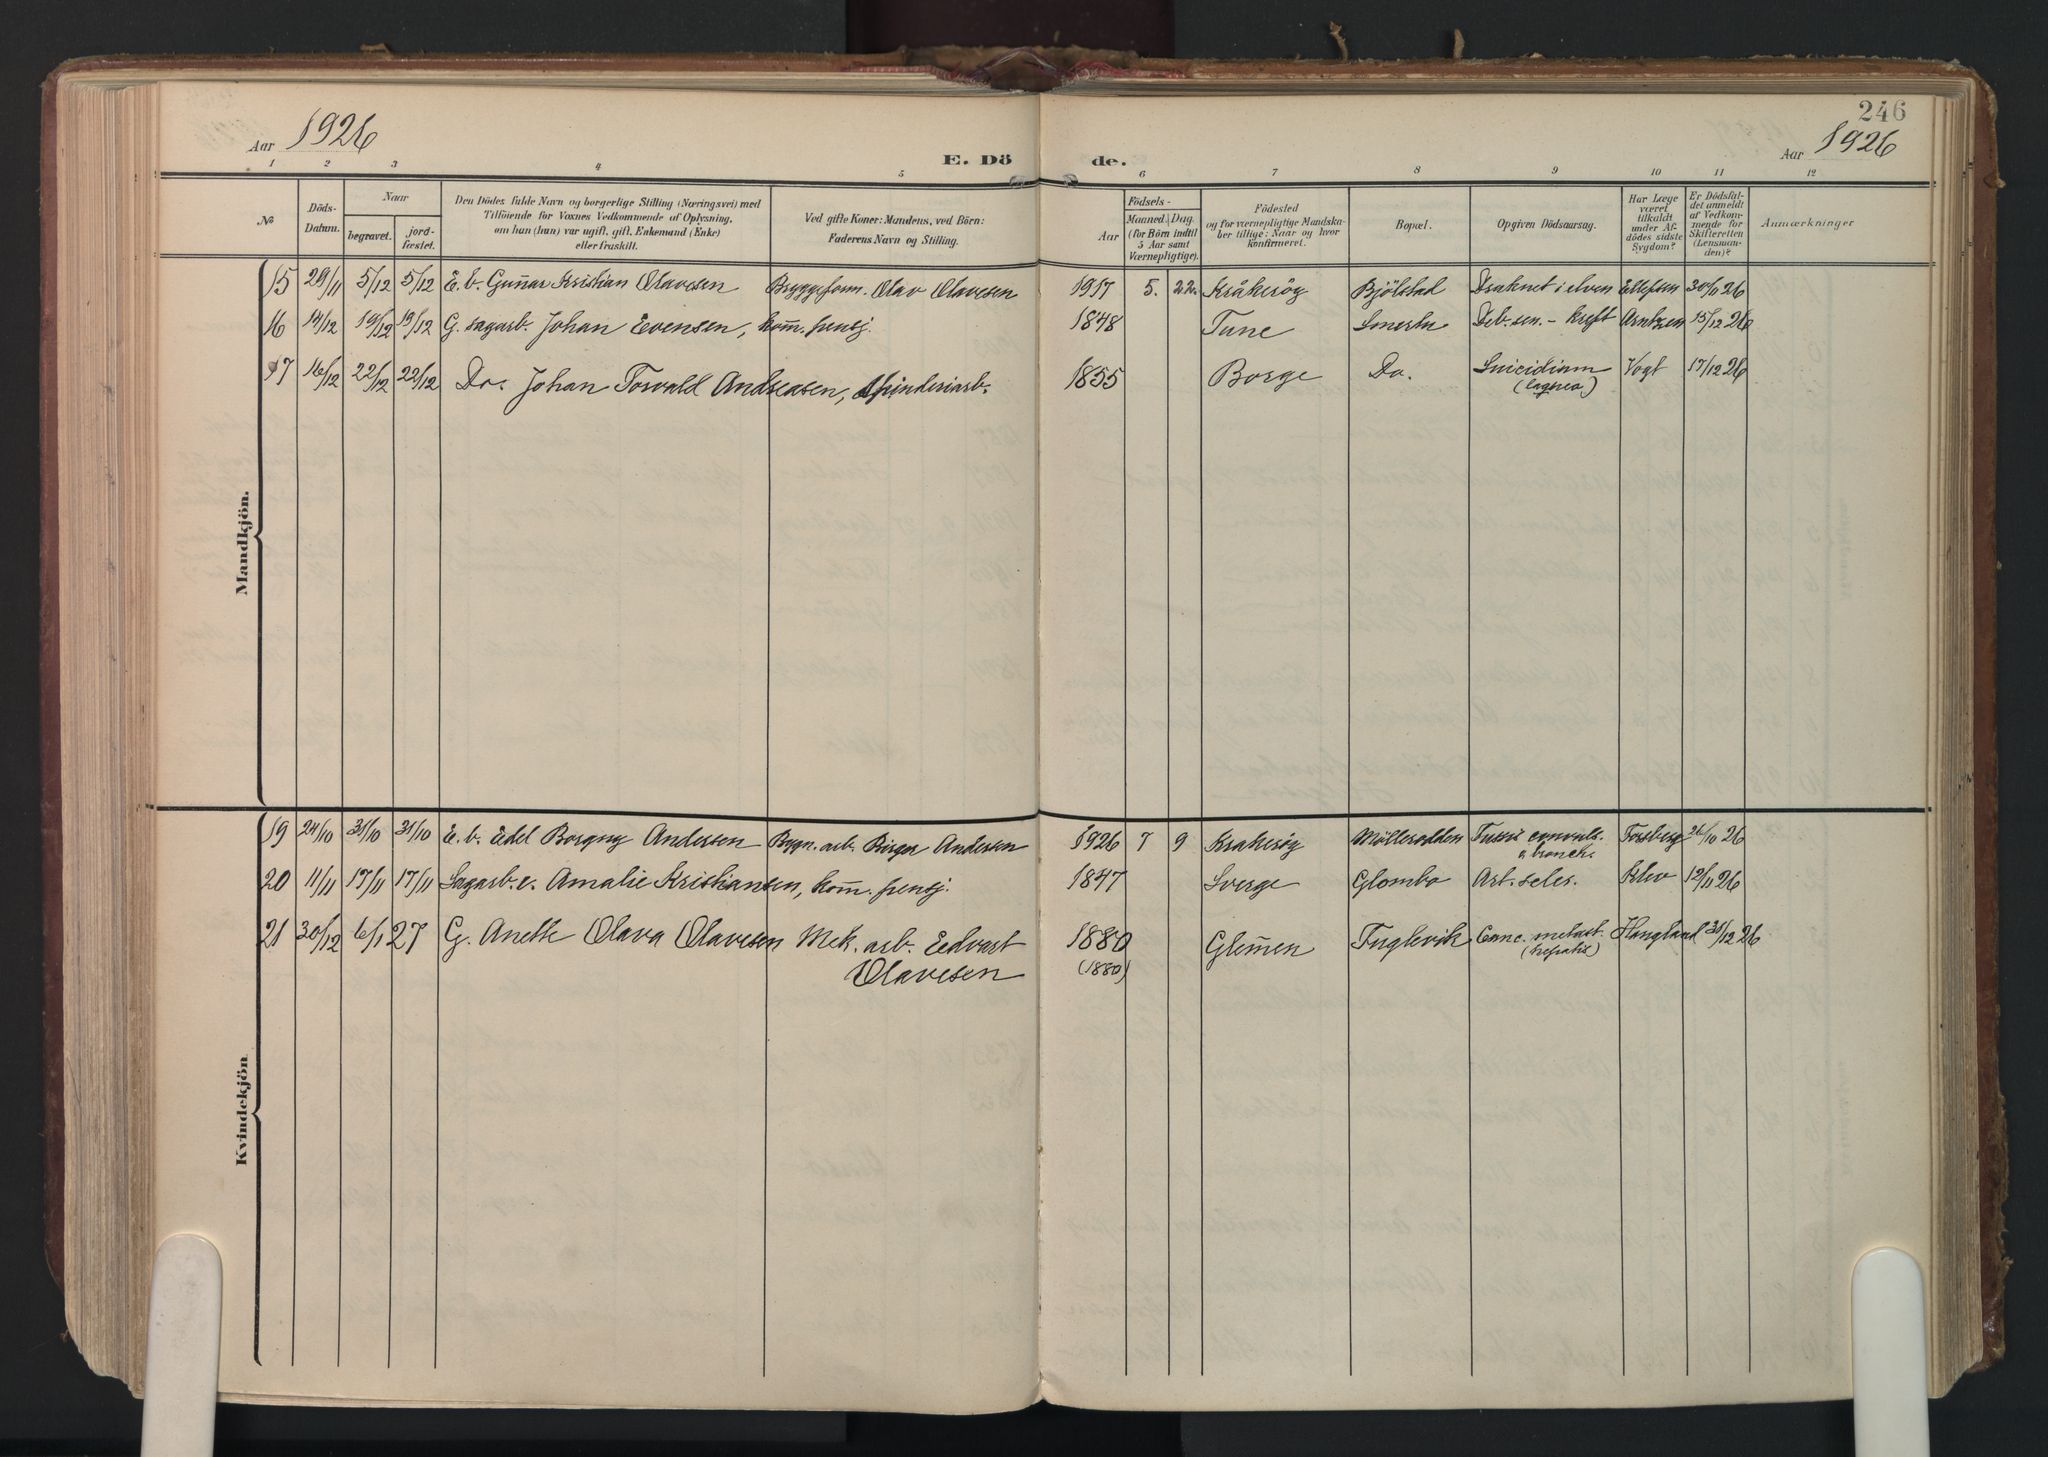 246
Aar 1926
E. Dö de.
Aar 1926
1 2 3 4 5 6 7 8 9 10 11 12
№
Döds-Datum.
Naar
begravet.
jord-fæstet.
Den Dödes fulde Navn og borgerlige Stilling (Næringsvei) med
Tilföiende for Voxnes Vedkommende af Oplysning,
om han (hun) var ugift, gift, Enkemand (Enke)
eller fraskilt.
Ved gifte Koner: Mandens, ved Börn:
Faderens Navn og Stilling.
Födsels-
Aar
Maaned. Dag.
(for Börn indtil
5 Aar samt
Værnepligtige).
Födested
og for værnepligtige Mandska-
ber tillige: Naar og hvor
konfirmeret.
Bopæl.
Opgiven Dödsaarsag.
Har Læge
været
tilkaldt
under Af-
dödes sidste
Sygdom?
Er Dödsfal-
det anmeldt
af Vedkom-
mende for
Skifteretten
(Lensman-
den)?
Anmærkninger
Mandkjön.
15 29/11 5/12 5/12 E. b. Gunnar Kristian Olavesen Bryggeform. Olav Olavesen 1917 5. 22. Kråkeröy Bjölstad Druknet i elven Ellefsen 30/11 26
16 14/12 19/12 19/12 G. sagarb. Johan Evensen, kom. pensj. 1848 Tune Smertu Deb. sen. - kreft Arntzen 15/12 26
17 16/12 22/12 22/12 Do. Johan Torvald Andreasen, Spinderiarb. 1855 Borge Do. Suicidium Vogt 17/12 26
Kvindekjön
19 24/10 31/10 31/10 E. b. Edel Borgny Andersen Bygn. arb. Birger Andersen 1926 7 9 Krakeröy Möllerodden Tussis convuls. Forsberg 26/10 26
& bronch.
20 11/11 17/11 17/11 Sagarb. e. Amalie Kristiansen, kom. pensj. 1847 Sverge Glombo Art. scler. Klev 12/11 26
21 30/12 6/1 27 G. Anette Olava Olavesen Mek. arb. Edvart 1880 Glemmen Fuglevik Canc. metast. Haugland 31/12 26
Olavesen (1880) (hepatis)